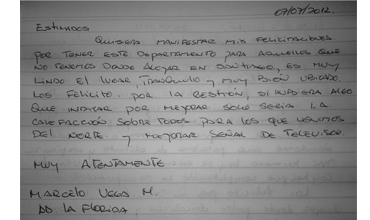 07/07/2012.
Estimados
Quisiera manifestar mis felicitaciones
por tener este departamento para aquellos que
no tenemos donde alojar en Santiago, es muy
lindo el lugar, tranquilo y muy bien ubicado.
Los felicito por la gestión, si hubiera algo
que indicar por mejorar solo seria la
calefacción sobre todos para los que venimos
del norte y mejorar señal de televisor
Muy Atentamente
Marcelo Vega M.
AD La Florida